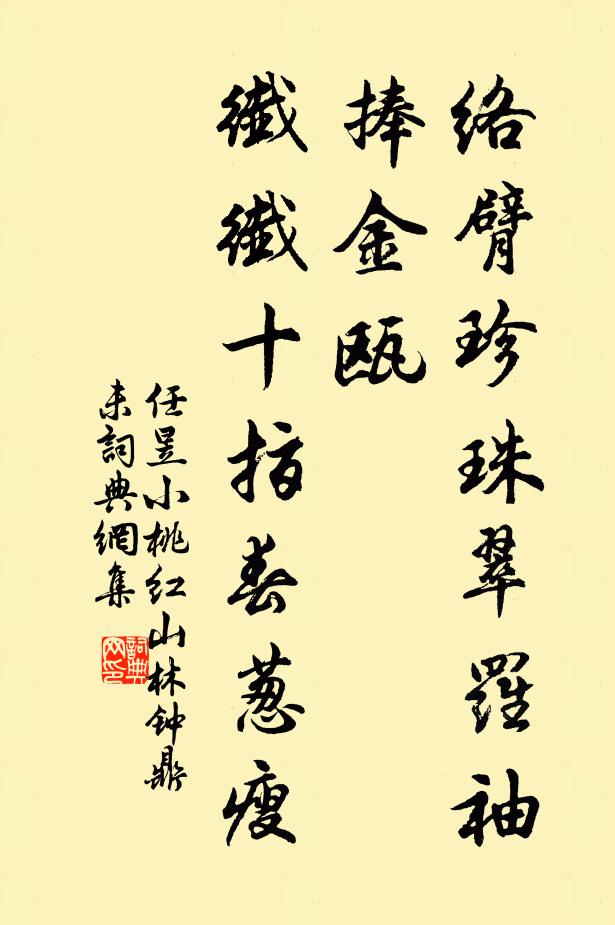 络臂珍珠翠羅袖
捧金甌
纖纖十指春葱瘦
任昱小桃红山林钟鼎
未詞典網集
詞典
网印